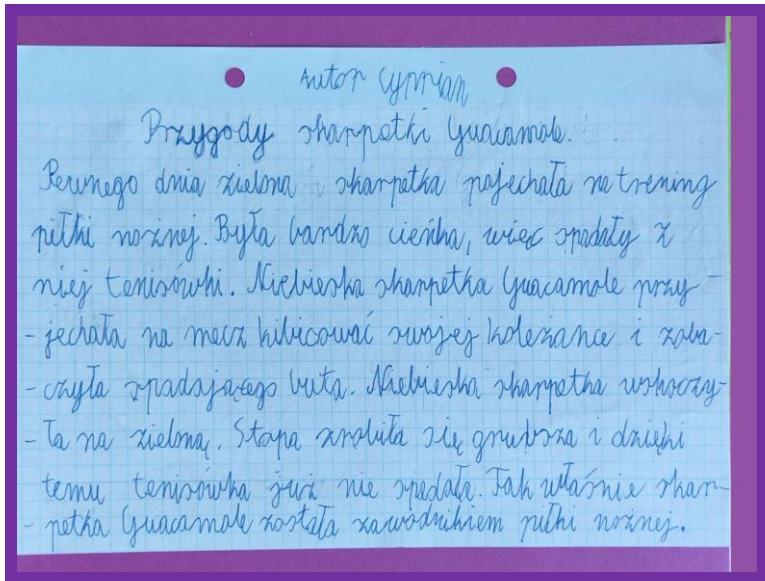 Autor Cyprian
Przygody skarpetki Guacamole.
Pewnego dnia zielona skarpetka pojechała na trening
piłki nożnej. Była bardzo cieńka, więc spadały z
niej tenisówki. Niebieska skarpetka Guacamole przy-
- jechała na mecz kibicować swojej koleżance i zoba-
- czyła spadającego buta. Niebieska skarpetka wskoczy-
- ła na zieloną. Stopa zrobiła się grubsza i dzięki
temu tenisówka już nie spadała. Tak właśnie skar-
- petka Guacamole została zawodnikiem piłki nożnej.